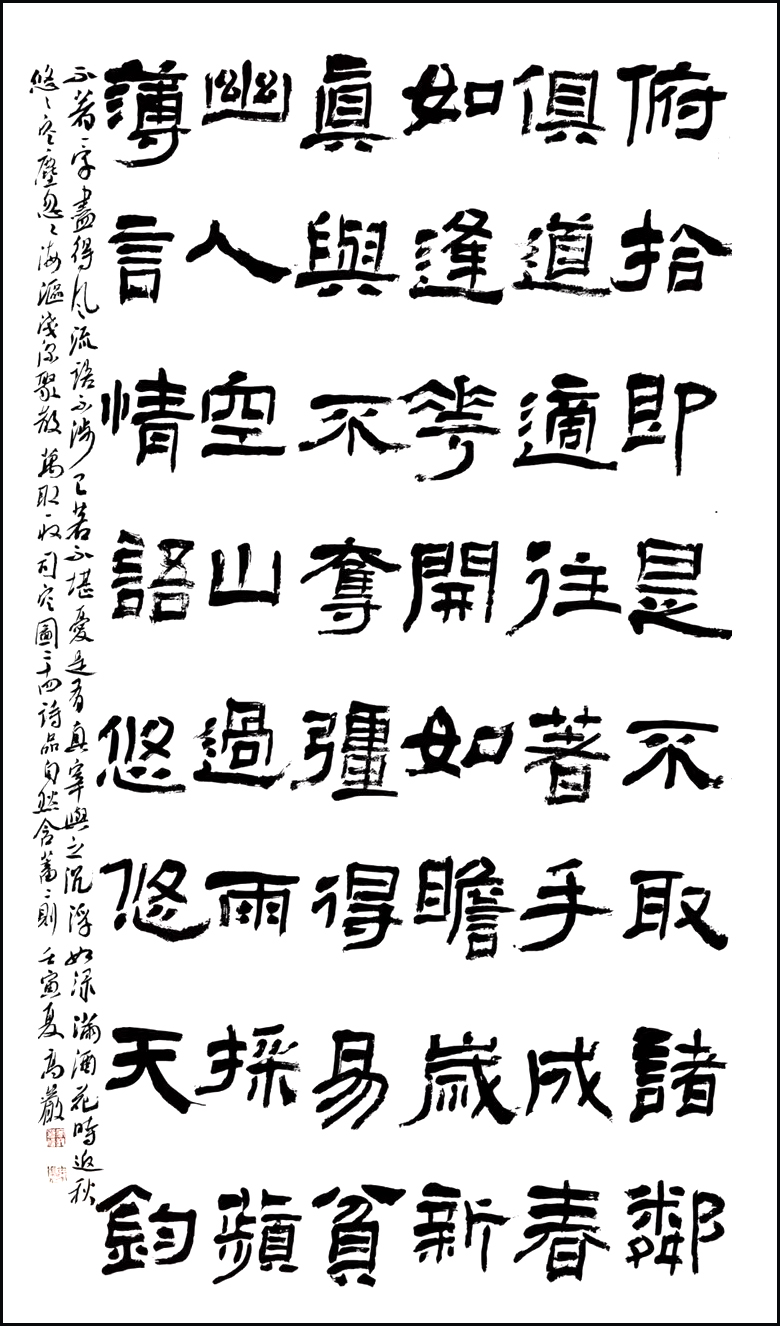 俯拾即是不取諸鄰
俱道適往著手成春
如逢花開如瞻歲新
眞與不奪彊得易貧
幽人空山過雨採蘋
薄言情語悠悠天鈞
不著一字盡得风流語不涉己若不堪憂是有真宰與之沉浮如淥滿酒花時返秋
悠〻空塵忽〻海漚淺深聚散萬取一收司空圖二十四詩品自然含蓄二則壬寅夏高巖